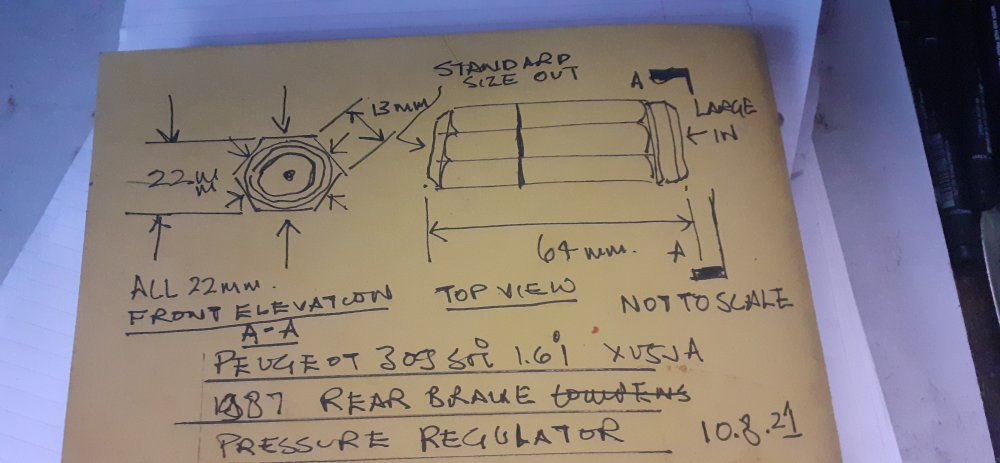 STANDARD
SIZE OUT
13mm
A
LARGE
IN
22mm
64 mm.
A
ALL 22mm.
FRONT ELEVATION
A-A
TOP VIEW
NOT TO SCALE
PEUGEOT 309 SRi 1.6i XU5JA
1987 REAR BRAKE
PRESSURE REGULATOR
10.8.21